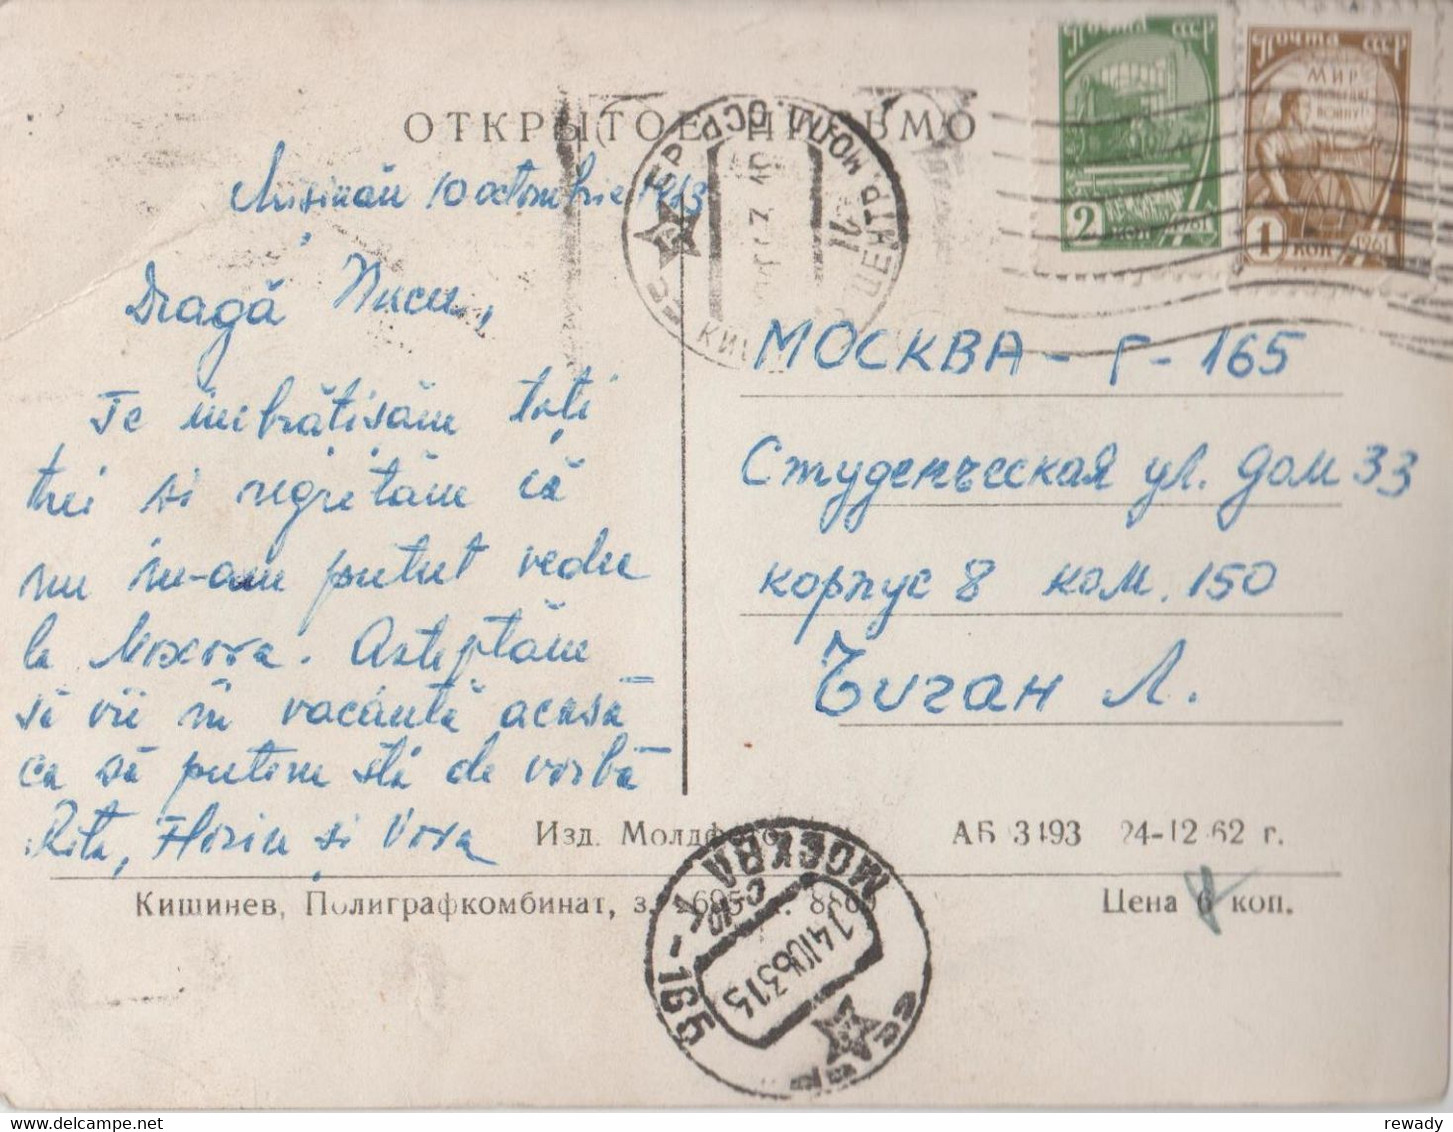 ОТКРЫТОЕ ПИСЬМО
10 octombrie 1963
Dragă Nucu,
Te îmbrățișăm toți
trei si regretăm că
nu ne-am putut vedea
la Moscova. Așteptăm
să vii în vacanță acasă
ca să putem sta de vorbă
Rita, Florin și Vova
ПОЧТА СССР
2 КОП 1961
ПОЧТА СССР
МИР
1 КОП 1961
МОСКВА - Г - 165
Студенческая ул. дом 33
корпус 8 ком. 150
Чиган Л.
Изд. Молдфото
АБ 3493 24-12-62 г.
Кишинев, Полиграфкомбинат, з.
Цена коп.
МОСКВА К-165
14 10 63 15